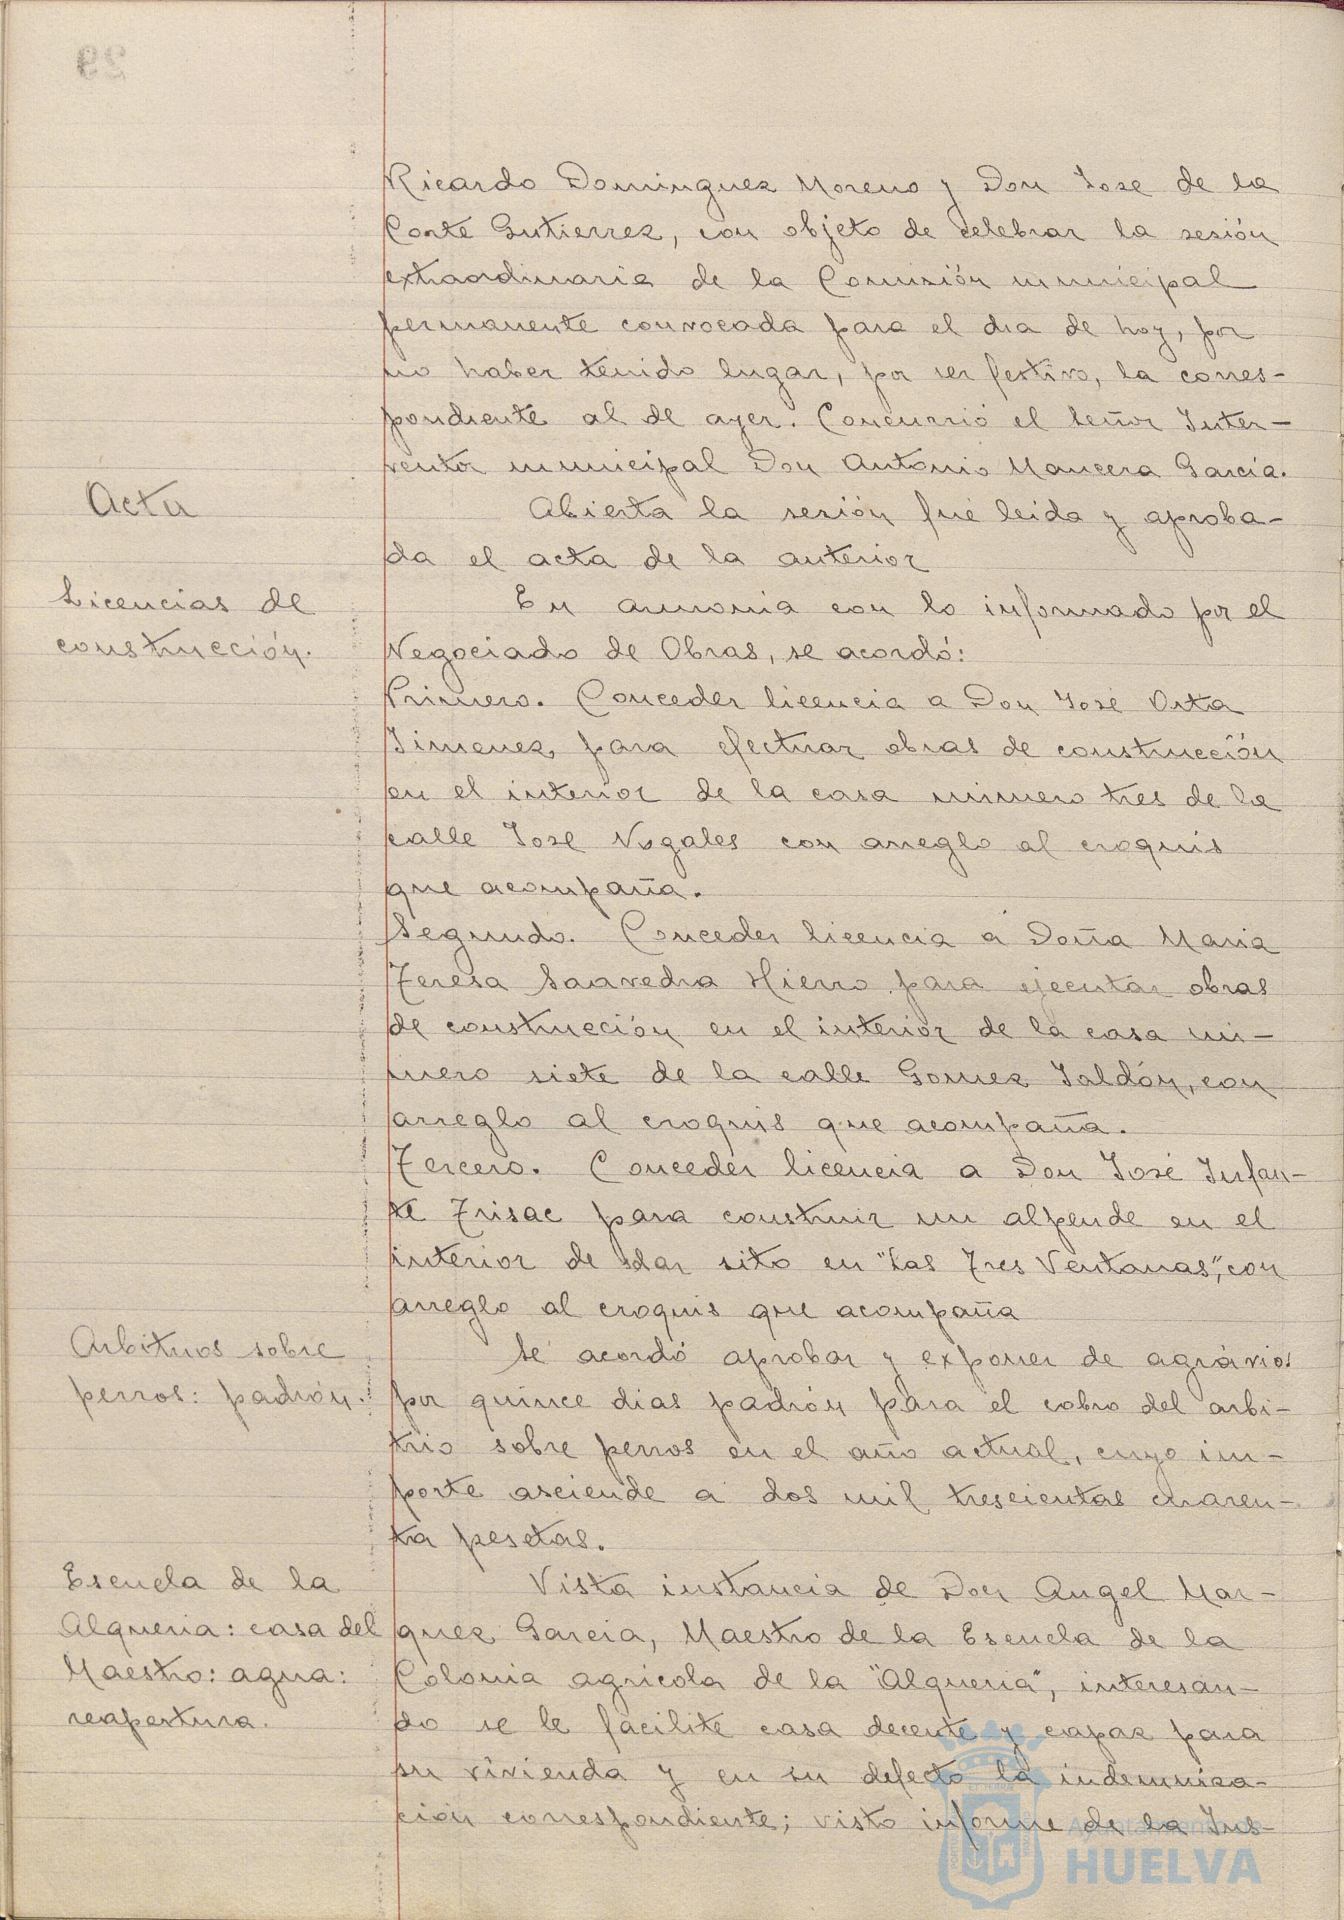 Ricardo Dominguez Moreno y Don Jose de la
Corte Gutierrez, con objeto de celebrar la sesión
extraordinaria de la Comisión municipal
permanente convocada para el dia de hoy, por
no haber tenido lugar, por ser festivo, la corres-
pondiente al de ayer. Concurrió el señor Inter-
ventor municipal Don Antonio Mancera García.
Acta
Abierta la sesión fué leida y aproba-
da el acta de la anterior
Licencias de
construcción.
En armonia con lo informado por el
Negociado de Obras, se acordó:
Primero. Conceder licencia a Don José Orta
Jimenez para efectuar obras de construcción
en el interior de la casa número tres de la
calle José Nogales con arreglo al croquis
que acompaña.
Segundo. Conceder licencia a Doña Maria
Teresa Saavedra Hierro para ejecutar obras
de construcción en el interior de la casa nú-
mero siete de la calle Gomez Jaldón, con
arreglo al croquis que acompaña.
Tercero. Conceder licencia a Don José Infan-
te Trisac para construir un alpende en el
interior de solar sito en "Las Tres Ventanas", con
arreglo al croquis que acompaña
Arbitrios sobre
perros: padrón.
Se acordó aprobar y exponer de agravios
por quince dias padrón para el cobro del arbi-
trio sobre perros en el año actual, cuyo im-
porte asciende a dos mil trescientas cuaren-
ta pesetas.
Escuela de la
Alqueria: casa del
Maestro: agua:
reapertura.
Vista instancia de Don Angel Mar-
quez Garcia, Maestro de la Escuela de la
Colonia agricola de la "Alqueria", interesan-
do se le facilite casa decente y capaz para
su vivienda y en su defecto la indemniza-
ción correspondiente; visto informe de la Ins-
Ayuntamiento de
HUELVA